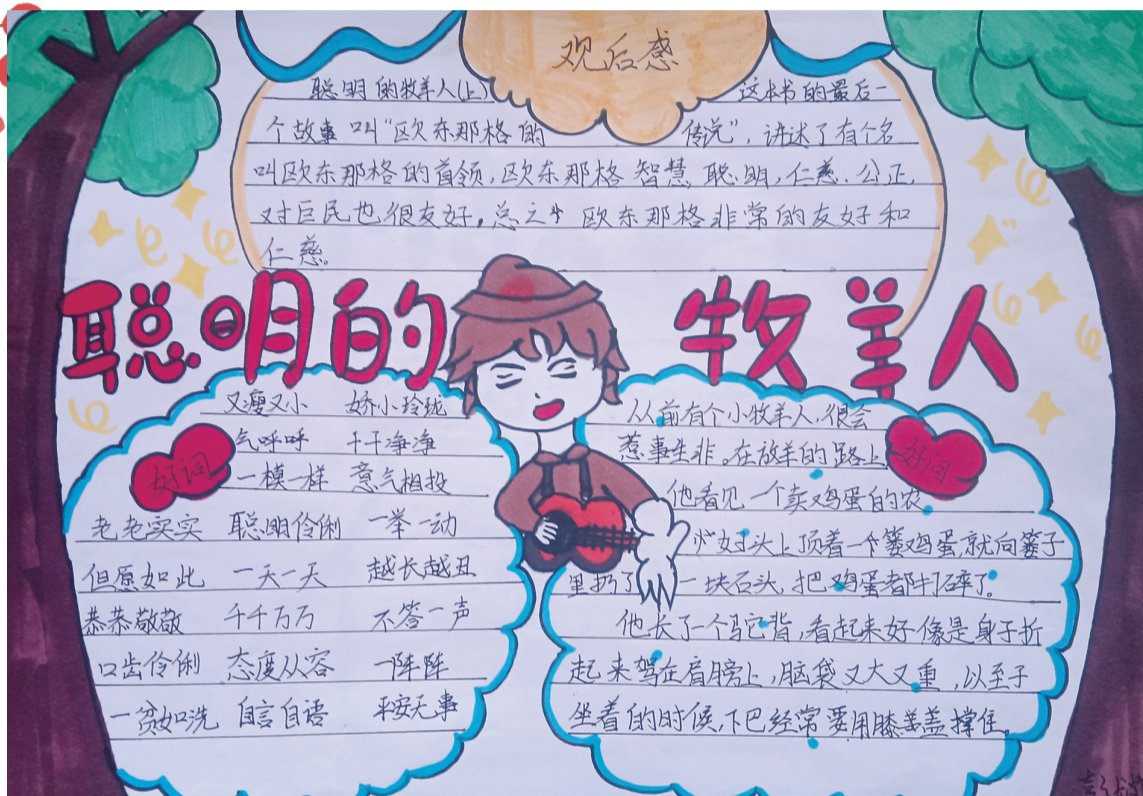 观后感
聪明的牧羊人(上) 这本书的最后一
个故事叫“欧东那格的 传说”,讲述了有个名
叫欧东那格的首领,欧东那格智慧、聪明,仁慈、公正,
对巨民也很友好。总之 欧东那格非常的友好和
仁慈。
聪明的 牧羊人
又瘦又小 娇小玲珑
好词
气呼呼 干干净净
一模一样 意气相投
老老实实 聪明伶俐 一举一动
但愿如此 一天一天 越长越丑
恭恭敬敬 千千万万 不答一声
口齿伶俐 态度从容 一阵阵
一贫如洗 自言自语 平安无事
从前有个小牧羊人,很会
惹事生非。在放羊的路上
好词
他看见一个卖鸡蛋的农
头上顶着一个篓鸡蛋,就向篓子
里扔了一块石头,把鸡蛋都打碎了。
他长了一个驼背,看起来好像是身子折
起来驾在肩膀上,脑袋又大又重,以至于
坐着的时候,下巴经常要用膝盖撑住。